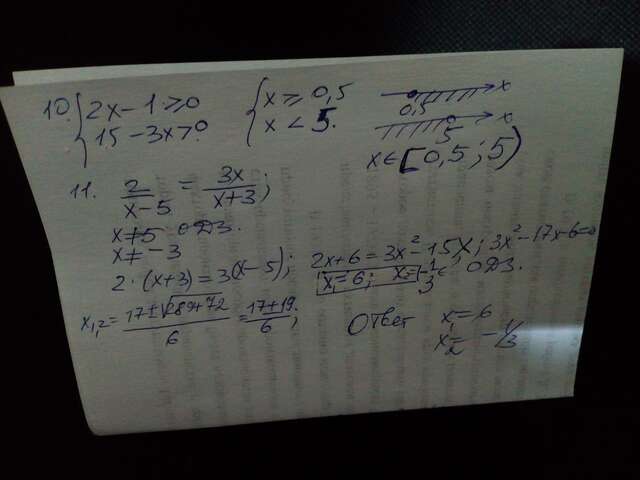 10. { 2x - 1 ≥ 0 { x ≥ 0,5 x
15 - 3x > 0 x < 5. 0,5 x
5
x ∈ [0,5 ; 5)
11. 2/(x-5) = 3x/(x+3) ;
x ≠ 5 ОДЗ.
x ≠ -3
2·(x+3) = 3(x-5); 2x+6 = 3x² - 15x; 3x² - 17x - 6 = 0
x₁ = 6; x = -1/3 ∈ ОДЗ.
x₁,₂ = (17 ± √289+72)/6 = (17 ± 19)/6 ;
Ответ x₁ = 6
x₂ = -1/3